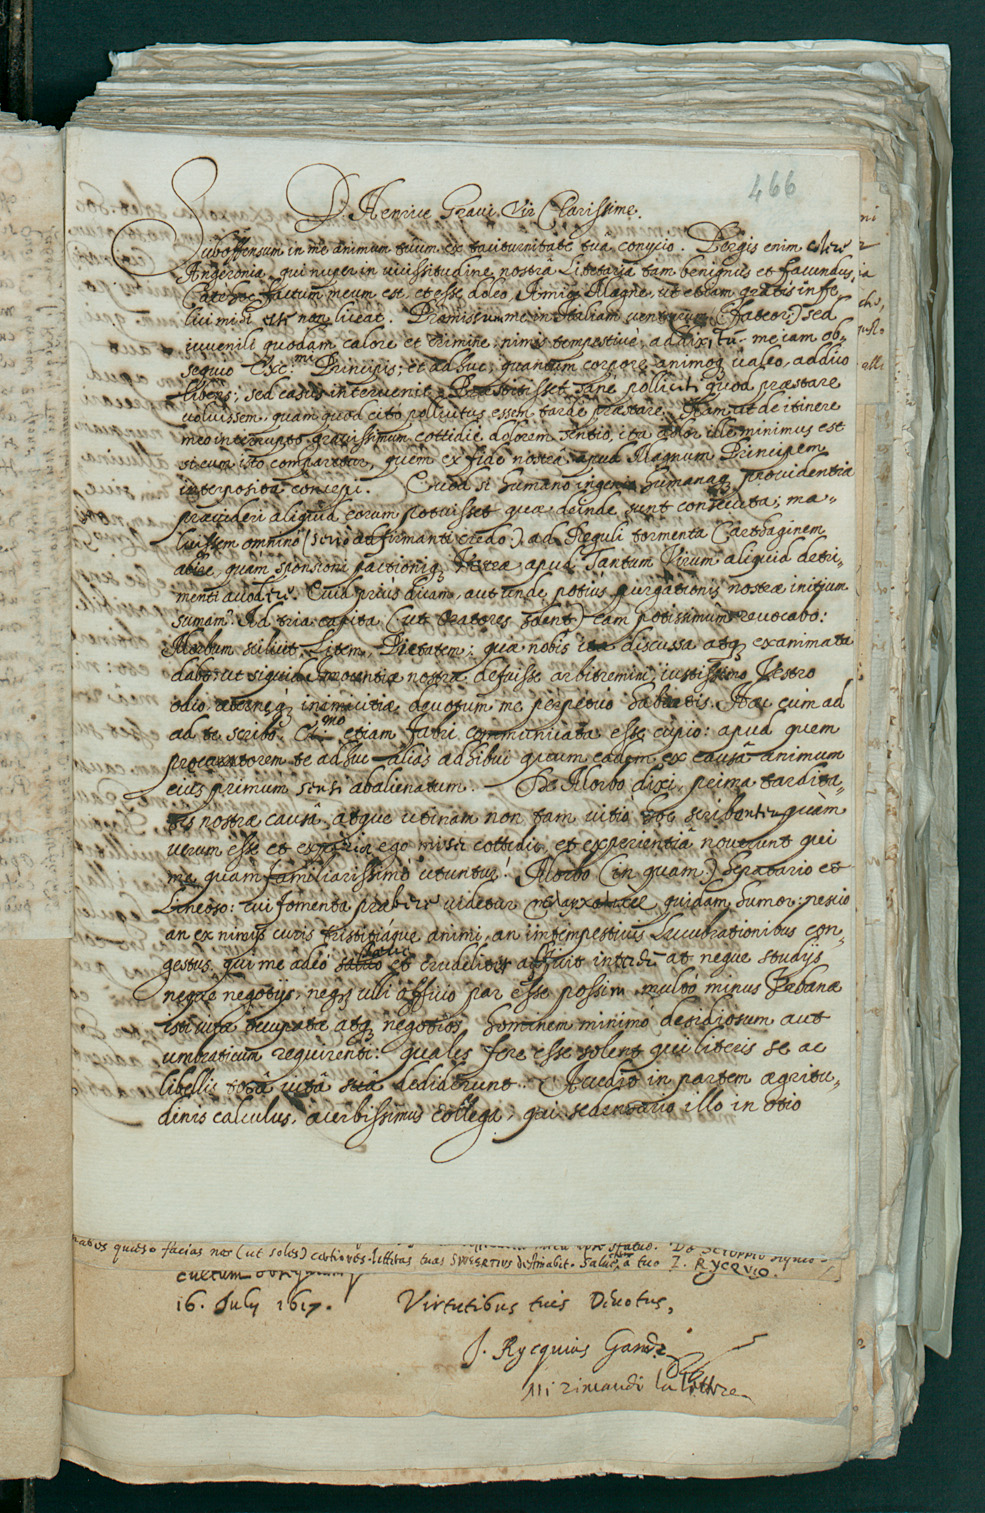 466
D. Henrice Gravi. Vir Clarissime.
Suboffensum in me animum tuum ex taciturnitate tuâ conijcio. Pergis enim
Angeronia, qui nuper in vicissitudine nostrâ Literaria tam benignus et facundus.
factum meum est, et esse doleo, Amice Magne, ut etiam gratis infe-
lici mihi non liceat. Promissum me in Italiam venturum (fateor:) sed
iuvenili quodam calore et crimine, nimis tempestivè, addixi tum me iam ob-
sequio Exc.mi Principis; et adhuc, quantum corpore animoq valeo, addico
libens; sed casus intervenit. Praestitisset sane polliciti quod praestare
voluissem, quam quod cito pollicitus essem tardè praestare. Nam ut de itinere
meo interrupto gravissimum cottidie dolorem sentio, ita dolor ille minimus est
si cum isto comparetur, quem ex fide nostra apud Magnum Principem
interposita concepi. Quod si humano ingenio humanaq providentia
praevideri aliquid eorum potuisset quae deinde sunt consecuta; ma-
luissem omnino (serio adfirmanti credo:) ad Reguli tormenta Carthaginem
abire, quàm sponsioni pactioniq Vestrae apud Tantum Virum aliquid detri-
menti Quid prius dicam, aut unde potius purgationis nostrae initium
sumam? Ad tria capita (ut Oratores solent) eam potissimum revocabo:
Morbum scilicet, Litem, Pietatem: quae nobis ita discussa atq examinata
dabo, ut siquid innocentiae nostrae defuisse arbitremini, iustissimo Vestro
odio aeternaeq inimicitiae devotum me perpetuo habeatis. Haec cum ad
ad te scribo, Cl.mo etiam Fabri communicata esse cupio: apud quem
procuratorem te adhuc alias adhibui quum eadem ex causâ animum
eius primum sensi abalienatum. De Morbo dixi, prima tardita-
tis nostrae causâ, atque utinam non tam vitio hoc scriberetur quam
verum esse et experior ego miser cottidie, et experientiâ noverunt qui
me quàm familiarissimè utuntur! Morbo (inquam) hepatario et
Lineoso: cui fomenta praebere videtur μελαγχολικὸς quidam humor: nescio
an ex nimijs curis tristitiaque animi, an intempestivis Lucubrationibus con-
gestus, qui me adeo et crudeliter afflixit interdiu at neque studijs
neque negotijs, neq ulli officio par esse possim, multo minus Urbanae
isti vitae occupatae atq negotios, hominem minimo desidiosum aut
umbraticum requirenti: quales fere esse solent qui literis se ac
libellis totâ vitâ suâ dediderunt. Accedit in partem aegritu-
dinis calculus, acerbissimus collega, qui sedentario illo in otio
quaeso facias nos (ut soles) certiores. litteras tuas SWEERTIUS destinabit. Salve, a tuo J. RYCQVIO.
cultum
16. July 1617. Virtutibus tuis Devotus,
J. Rycquius Gand.
Mi rimandi la lettre